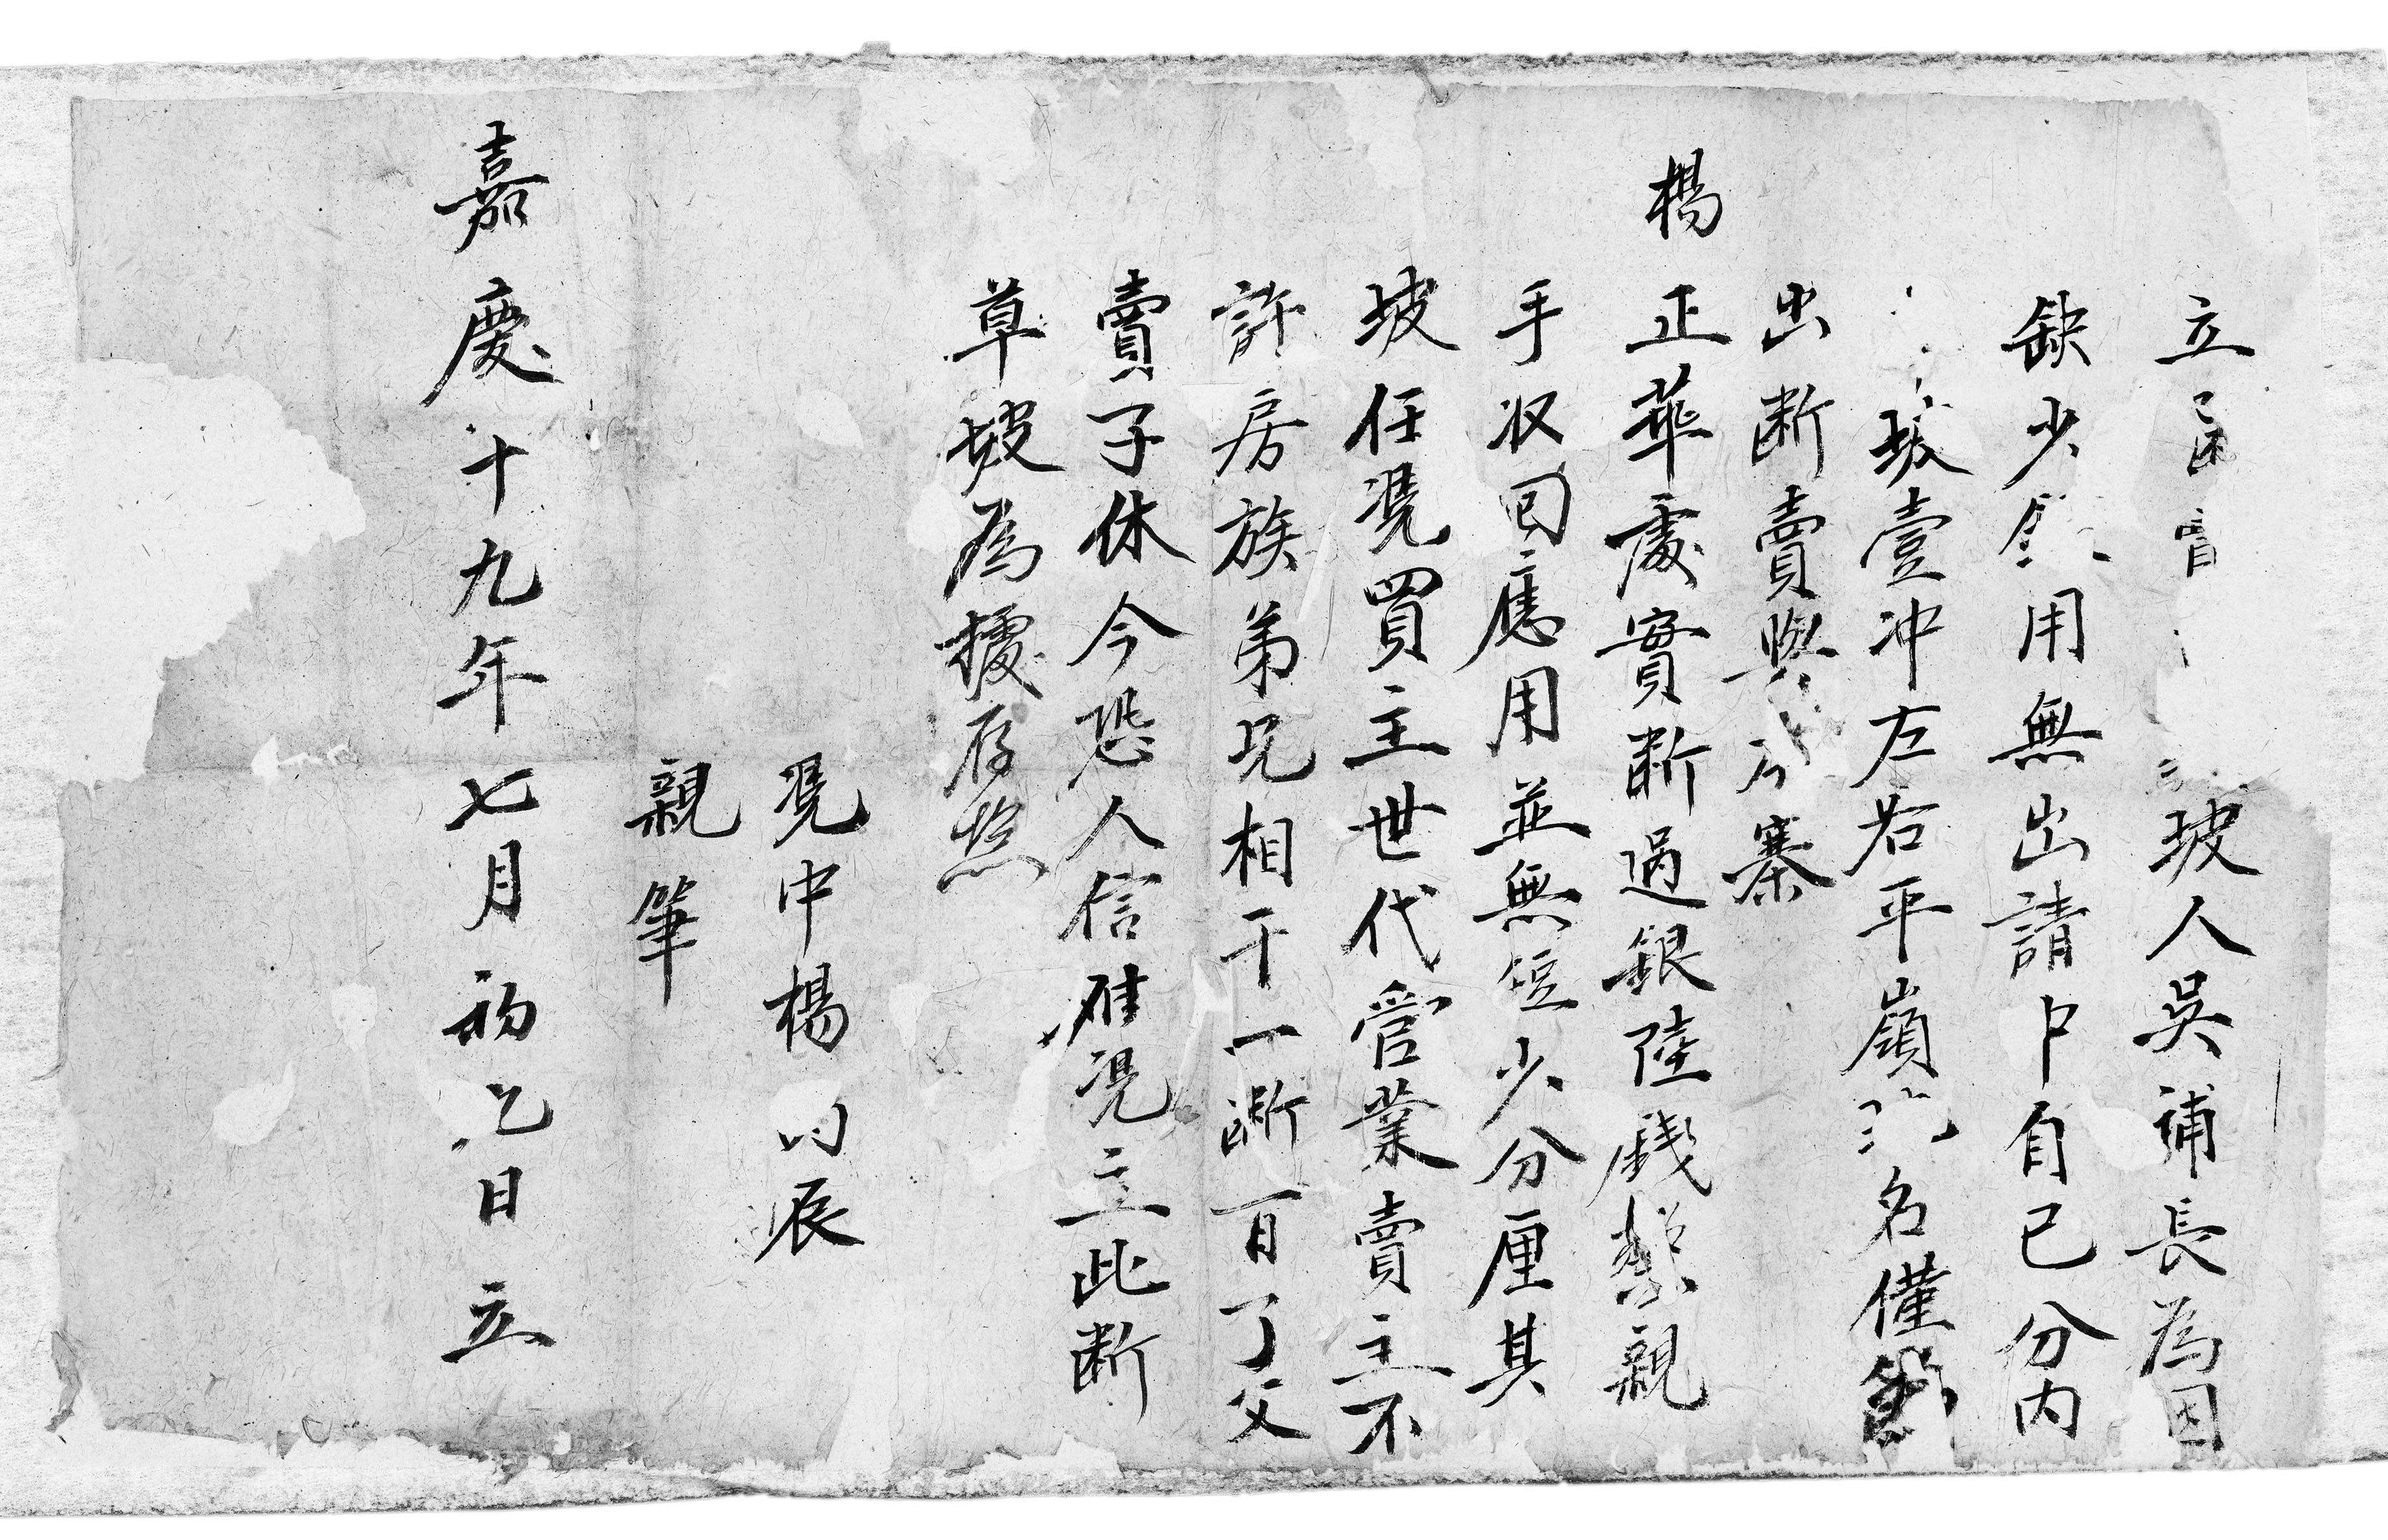 立 坡人吳補長為因
缺少 用無出請中自己分内
坡壹冲左右平嶺 名僅
出断賣與 寨
楊
正華處實断過銀陸錢 親
手收回應用並無短少分厘其
坡任凭買主世代管業賣主不
許房族弟兄相干一断百了父
賣子休今恐人信 凭立此断
草坡為據存照
凭中楊 辰
親筆
嘉慶十九年七月初乙日立